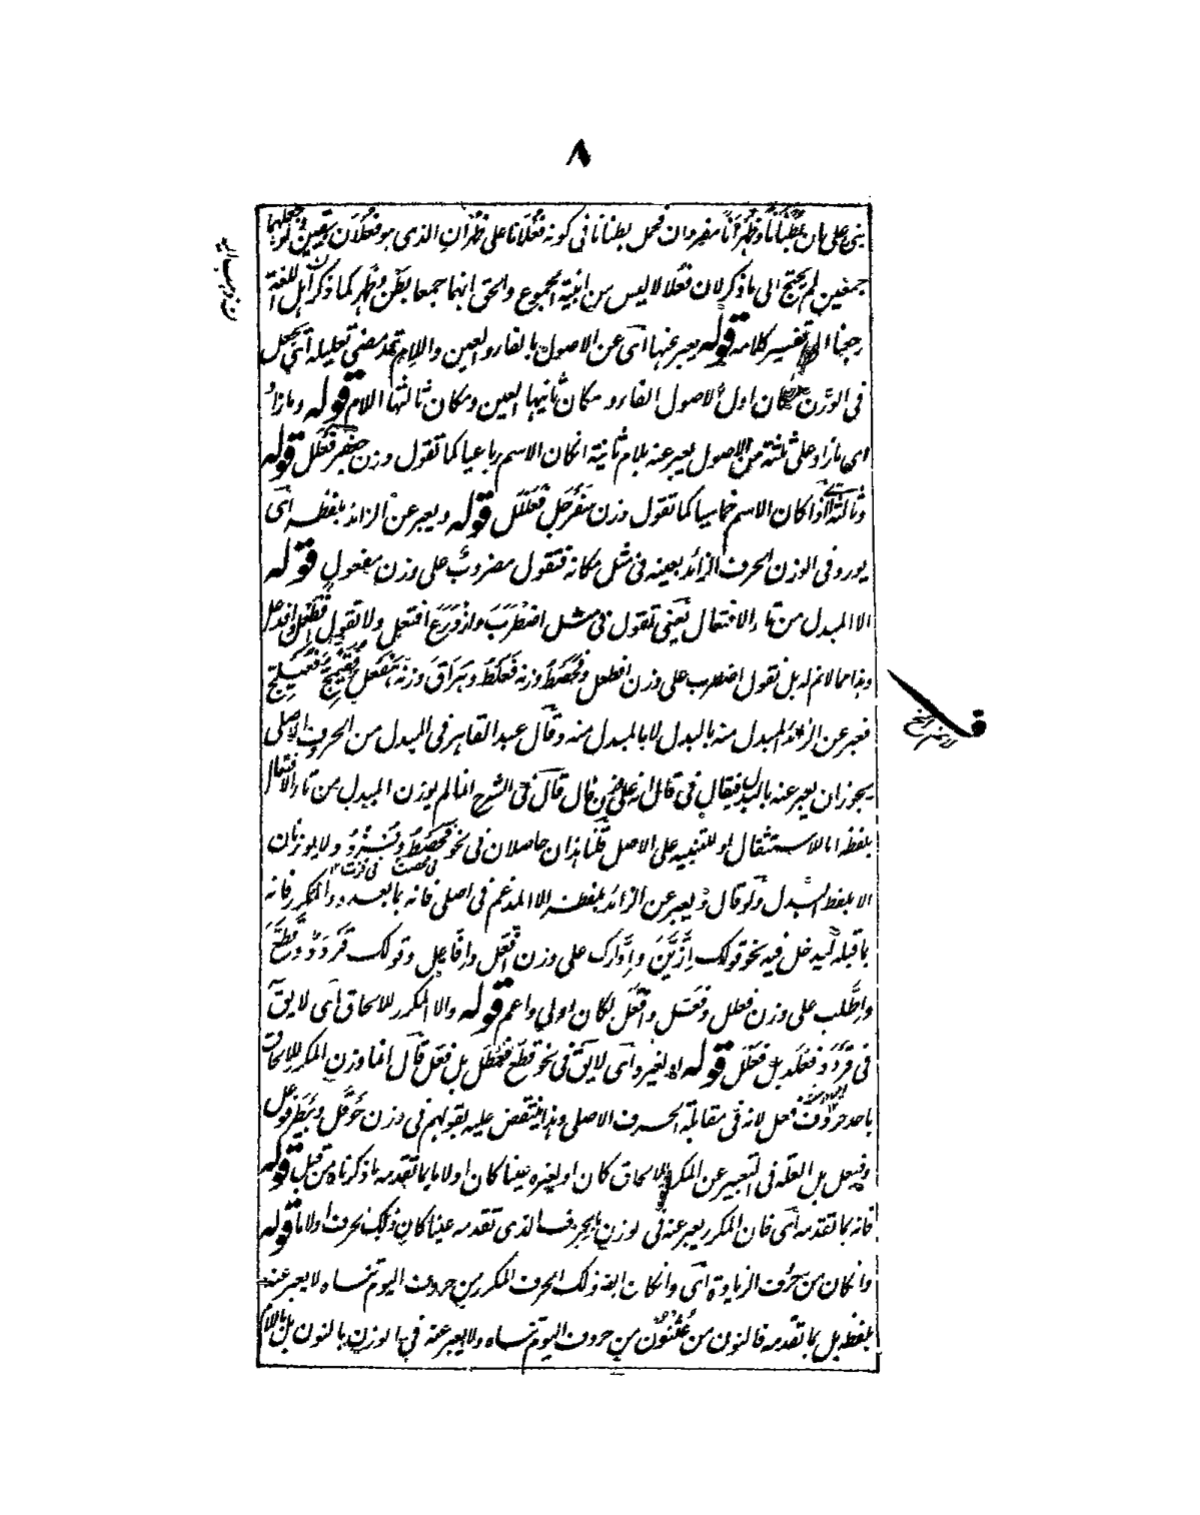 ٨
بنى على بان بُطْنَانًا وظُهْرَانًا مفردان فحمل بطنانا فى كونه فُعْلَانًا على ظُهْرَانٍ الذى هو فُعْلَان بيقين
جمعين لم يحتج الى ما ذكر لان فُعْلَالا ليس من ابنية الجموع والحق انهما جمعا بَطْن وظَهْر كما ذكر اهل اللغة
رجعنا الى تفسير كلامه قوله يعبر عنها اى عن الاصول بالفاء والعين واللام قد مضى تعليله اى يجعل
فى الوزن مكان اول الاصول الفاء ومكان ثانيها العين ومكان ثالثها اللام قوله وما زاد
اى ما زاد على ثلثة من الاصول يعبر عنه بلام ثانية انكان الاسم رباعيا كما تقول وزن جَعْفَر فَعْلَل قوله
وثالثة اذا كان الاسم خماسيا كما تقول وزن سَفَرْجَل فَعَلَّل قوله ويعبر عن الزائد بلفظه اى
يورد فى الوزن الحرف الزائد بعينه فى مثل مكانه فتقول مضروبٌ على وزن مفعول قوله
الا المبدل من تاء الافتعال يعنى تقول فى مثل اضطَرَبَ وازْدَرَعَ افتعل ولا تقول افطعل وافدعل
وهذا مما لانم له بل نقول اضطرب على وزن افطعل وفَحَصْطُ وزنه فَعَلْطُ وهَرَاقَ وزنه هَفْعَل
فيعبر عن الزائد المبدل منه بالبدل لا بالمبدل منه وقال عبد القاهر فى المبدل من الحرف الاصلى
يجوز ان يعبر عنه بالبدل فيقال فى قال انه على وزن فال قال فى الشرح انما لم يوزن المبدل من تاء الافتعال
بلفظه اما للاستثقال او للتنبيه على الاصل قلنا هذان حاصلان فى نحو فَحَصْطُ وفُزْدُ ولا يوزنان
الا بلفظ البدل ولو قال ويعبر عن الزائد بلفظه الا المدغم فى اصلى فانه بما بعده والمكرر فانه
بما قبله ليدخل فيه نحو قولك اِزَّيَّنَ واِدَّارَك على وزن اِفَّعَّل وافّاعل وقولك قَرْدَدٌ وقَطَّعَ
واطَّلب على وزن فعلل وفَعَّل وافَّعَل لكان اولى واعم قوله والا المكرر للالحاق اى لا يقَ
فى قَرْدَد فَعْلَد بل فَعْلَل قوله او لغيره اى لا يقَ فى نحو قطَّع فَعْطَل بل فَعَّل قال انما وزن المكرر للالحاق
باحد حروف فعل لانه فى مقابلة الحرف الاصلى وهذا ينتقض عليه بقولهم فى وزن حَوْقَل وبَيْطَر فوعل
وفيعل بل العلة فى التعبير عن المكرر للالحاق كان او لغيره عينا كان او لاما بما تقدمه ما ذكرناه من قبل قوله
فانه بما تقدمه اى فان المكرر يعبر عنه فى الوزن بالحرف الذى تقدمه عينا كان ذلك الحرف او لاما قوله
وانكان من حروف الزيادة اى وانكان ايضا ذلك الحرف المكرر من حروف اليوم تنساه لا يعبر عنه
بلفظه بل بما تقدمه فالنون من عُثْنُون من حروف اليوم تنساه ولا يعبر عنه فى الوزن بالنون بل باللام